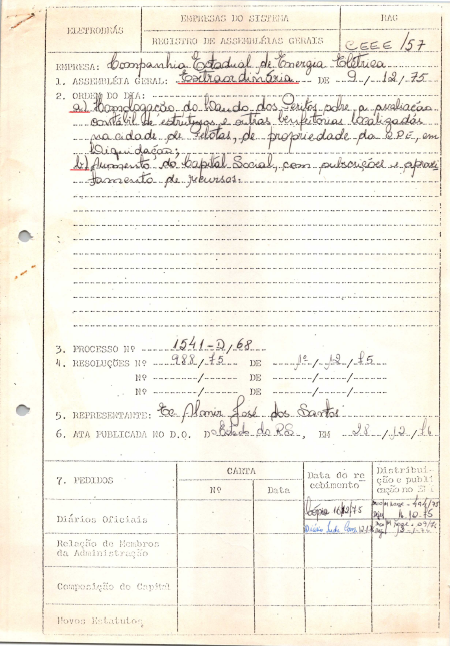 ELETROBRÁS
EMPRESAS DO SISTEMA
RAG
REGISTRO DE ASSEMBLÉIAS GERAIS
CEEE/57
EMPRESA: Companhia Estadual de Energia Elétrica
1. ASSEMBLÉIA GERAL: Extraordinária DE 9/12/75
2. ORDEM DO DIA:
a) Homologação do Laudo dos Peritos sobre a avaliação
contábil de estruturas e outras benfeitorias localizadas
na cidade de Pelotas, de propriedade da CPE, em
Liquidação;
b) Aumento do Capital Social, com subscrições e aprovei
tamento de recursos.
3. PROCESSO Nº 1541-D/68
4. RESOLUÇÕES Nº 988/75 DE 1º/12/75
Nº / DE / /
Nº / DE / /
5. REPRESENTANTE: Almir José dos Santos
6. ATA PUBLICADA NO D.O. D Estado do RS, EM 28/12/76
7. PEDIDOS
CARTA
Nº
Data
Data do re
cebimento
Distribui-
ção e publi
cação no
Diários Oficiais
Relação de Membros
da Administração
Composição do Capital
Novos Estatutos